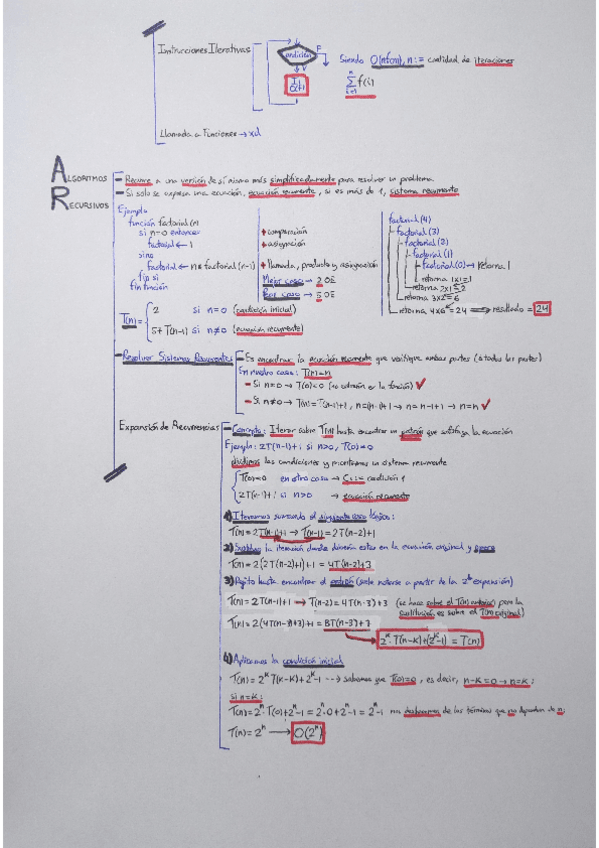 Instrucciones Iterativas
condición
F
V
Siendo O(nfcn), n := cantidad de iteraciones
Σ f(i)
n
i=1
Llamada a Funciones → xd
ALGORITMOS
RECURSIVOS
Recurre a una versión de sí mismo más simplificadamente para resolver un problema
Si solo se expresa una ecuación, ecuación recurrente, si es más de 1, sistema recurrente
Ejemplo
función factorial(n)
si n=0 entonces
factorial ← 1
sino
factorial ← n * factorial(n-1)
fin si
fin función
+ comparación
+ asignación
+ llamada, producto y asignación
Mejor caso → 2 OE
Peor caso → 5 OE
factorial(4)
factorial(3)
factorial(2)
factorial(1)
factorial(0) → retorna 1
retorna 1x1=1
retorna 2x1=2
retorna 3x2=6
retorna 4x6=24 ⟹ resultado = 24
T(n)=
2 si n=0 (condición inicial)
5+T(n-1) si n≠0 (ecuación recurrente)
Resolver Sistemas Recurrentes
Es encontrar la ecuación recurrente que verifique ambas partes (a todas las partes)
En nuestro caso: T(n)=n
Si n=0 → T(0)=0 (se adentra en la función) ✓
Si n≠0 → T(n)=T(n-1)+1, n=(n-1)+1 → n=n-1+1 → n=n ✓
Expansión de Recurrencias
Concepto: Iterar sobre T(n) hasta encontrar un patrón que satisfaga la ecuación
Ejemplo: 2T(n-1)+1 si n>0, T(0)=0
las condiciones y planteamos un sistema recurrente
T(0)=0 en otro caso → condición
2T(n-1)+1 si n>0 → ecuación recurrente
1) Iteramos sumando el siguiente caso lógico:
T(n)=2T(n-1)+1 → T(n-1)=2T(n-2)+1
2) la iteración donde debería estar en la ecuación original y opero
T(n)=2(2T(n-2)+1)+1=4T(n-2)+3
3) Repito hasta encontrar el patrón (suele notarse a partir de la 2ª expansión)
T(n)=2T(n-1)+1 → T(n-2)=4T(n-3)+3 (se hace sobre el T(n) anterior) pero la
sustitución es sobre el T(n) original)
T(n)=2(4T(n-3)+3)+1=8T(n-3)+7
2^k·T(n-k)+(2^k-1)=T(n)
4) Aplicamos la condición inicial
T(n)=2^k T(n-k)+2^k-1 --> sabemos que T(0)=0, es decir, n-k=0 → n=k:
si n=k:
T(n)=2^n·T(0)+2^n-1=2^n·0+2^n-1=2^n-1 nos deshacemos de los términos que no dependan de n:
T(n)=2^n → O(2^n)